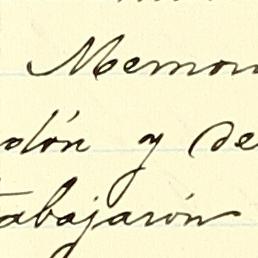 Memori
dón y de
tabajarón